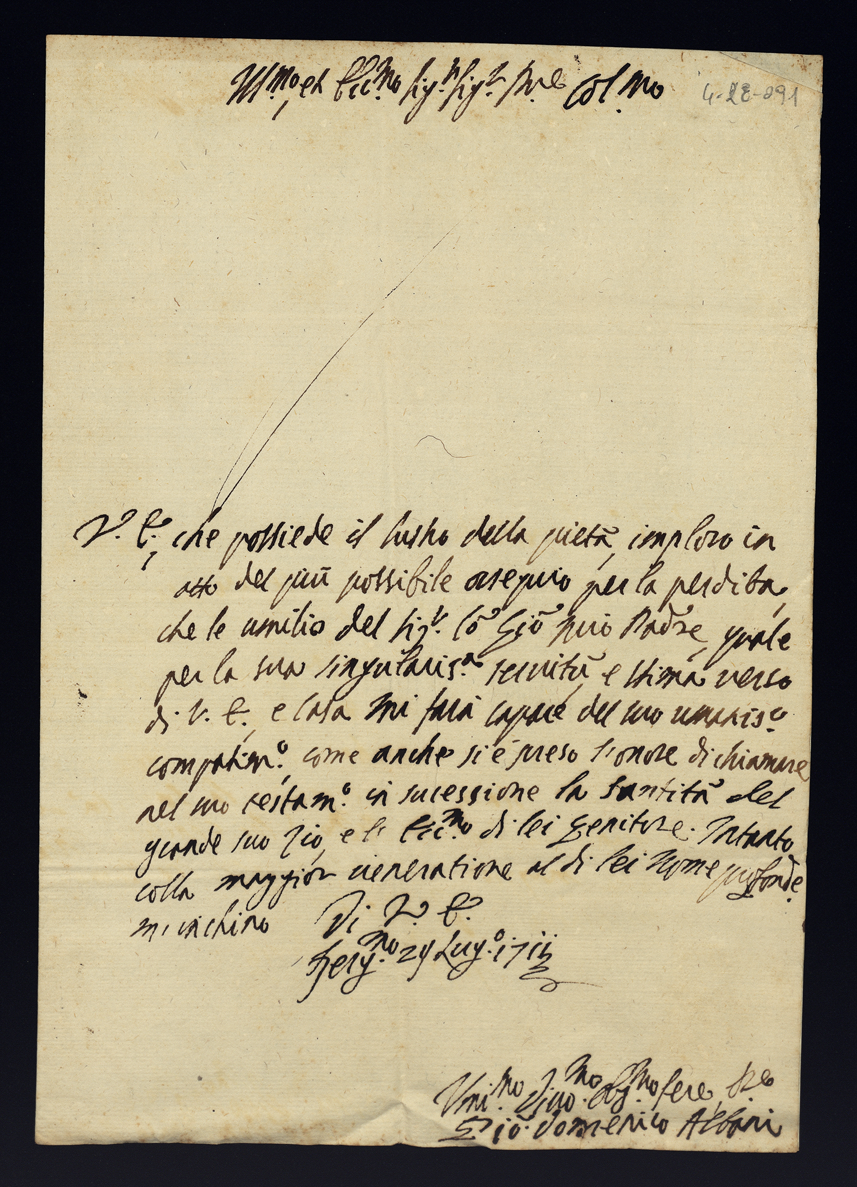 Ill.mo, et Ecc.mo Sig.r Sig.r P.ne Col.mo
4-22-091
V.a E., che possiede il lustro della pietà, imploro in
atto del più possibile ossequio per la perdita,
che le umilio del Sig.r Co. Giõ mio Padre, quale
per la sua singularis.a servitù, e stima verso
di V. E., e Casa mi farà capace del suo umanis.o
compatim.o, come anche si è preso l'onore di chiamare
nel suo testam.o in sucessione la Santità del
grande suo Zio, e l' Ecc.mo di lei Genitore. Intanto
colla maggior veneratione al di lei Nome profonde.
m'inchino Di V.a E.
Berg.mo 29 Lug.o 1711
Umi.mo Divo.mo Obg.mo Ser.e
Giõ: Domenico Albani